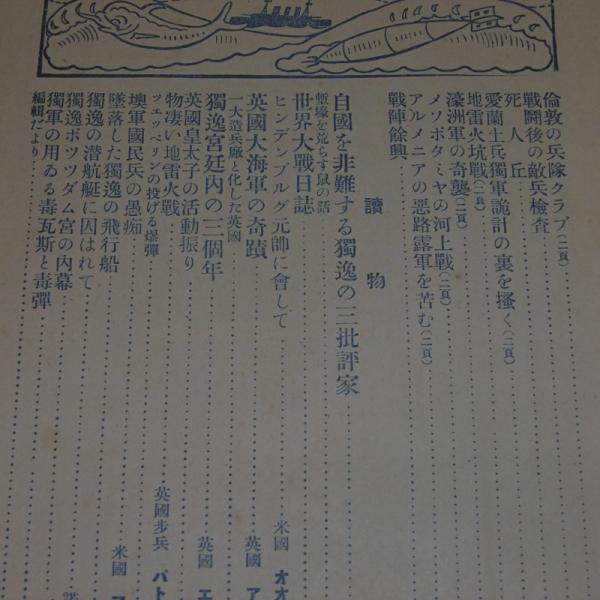 倫敦の兵隊クラブ(二頁)
戰鬪後の敵兵檢查
死人丘
愛蘭土兵獨軍詭計の裏を搔く(二頁)
地雷火坑戰(二頁)
濠洲軍の奇襲(二頁)
メソポタミヤの河上戰(二頁)
アルメニアの惡路露軍を苦む(二頁)
戰陣餘興
讀物
自國を非難する獨逸の三批評家
塹壕を荒らす鼠の話
世界大戰日誌
ヒンデンブルグ元帥に會して 米國 オオ
英國大海軍の奇蹟 英國 ア
一大造兵廠と化した英國
獨逸宮廷內の三個年 英國 エ
英國皇太子の活動振り
物凄い地雷火戰 英國步兵 パト
ツエツペリンの投げる爆彈
墺軍國民兵の愚痴 米國
墜落した獨逸の飛行船
獨逸の潜航艇に囚はれて
獨逸ポツツダム宮の內幕
獨軍の用ゐる毒瓦斯と毒彈
編輯だより